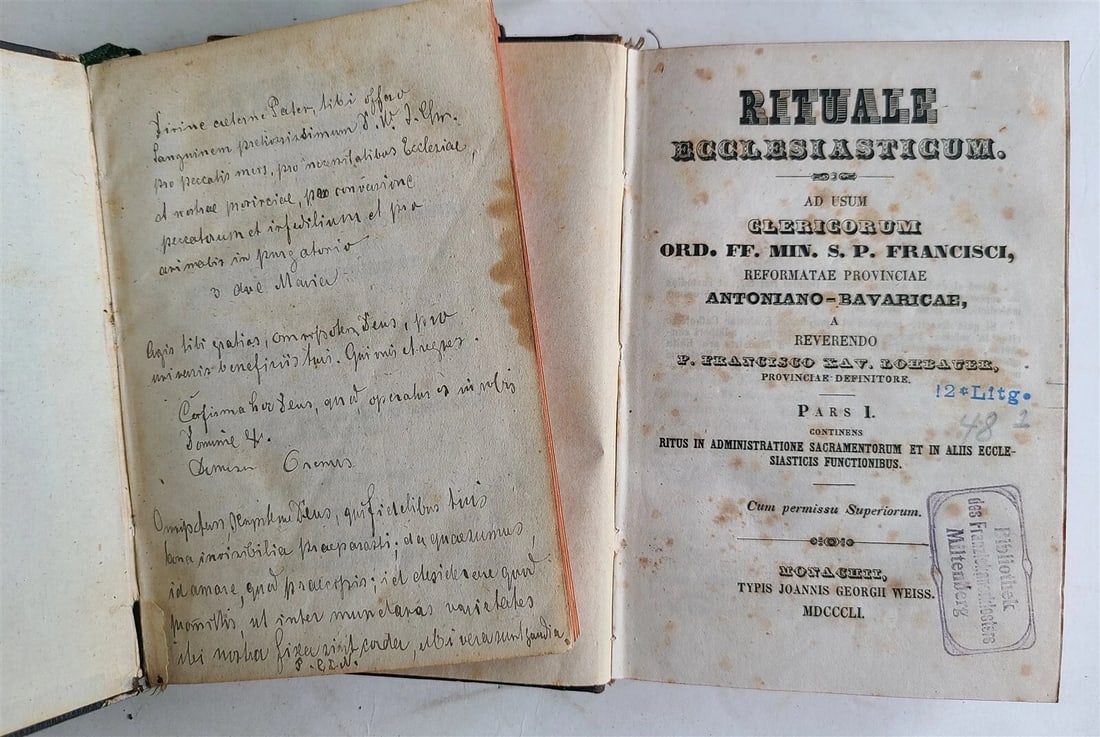 Divine aeterne Pater, tibi offero
Sanguinem pretiosissimum D. N. J. Chr.
pro peccatis meis, pro necessitatibus Ecclesiae,
et nostrae provinciae, pro conversione
peccatorum et infidelium et pro
animabis in purgatorio
3 ave Maria
Agis tibi gratias, omnipotens Deus, pro
universis beneficiis tuis. Qui vivis et regnas.
Confirma hoc Deus, quod operatus es in nobis
Domine &.
Oremus
Deus, qui fidelibus tuis
bona invisibilia praeparasti; da quaesumus
id amare, quod praecipis; id desiderare quod
promittis, ut inter mundanas varietates
ibi nostra fixa sint corda, ubi vera sunt gaudia.
RITUALE
ECCLESIASTICUM.
AD USUM
CLERICORUM
ORD. FF. MIN. S. P. FRANCISCI,
REFORMATAE PROVINCIAE
ANTONIANO-BAVARICAE,
A
REVERENDO
P. FRANCISCO XAV. LOHBAUER,
PROVINCIAE DEFINITORE.
!2*Litg.
48 2
PARS I.
CONTINENS
RITUS IN ADMINISTRATIONE SACRAMENTORUM ET IN ALIIS ECCLE-
SIASTICIS FUNCTIONIBUS.
Cum permissu Superiorum.
MONACHII,
TYPIS JOANNIS GEORGII WEISS.
MDCCCLI.
Bibliothek
des Franziskanerklosters
Miltenberg